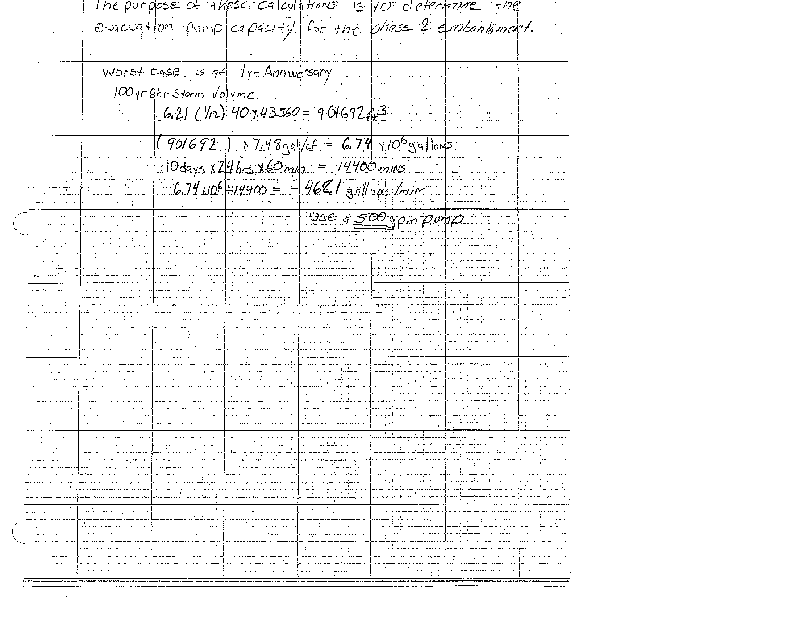 The purpose of these calculations is to determine the
evacuation pump capacity for the phase 2 embankment.
Worst case is at 1yr Anniversary
100yr 8hr Storm Volume
6.21 (1/12) 40 x 43560 = 901692 ft3
(901692) x 7.48 gal/cf = 6.74 x10⁶ gallons
10 days x 24 hrs x 60 min = 14400 mins
6.74 x10⁶ ÷ 14400 = 468.1 gallons/min
Use a 500 gpm pump